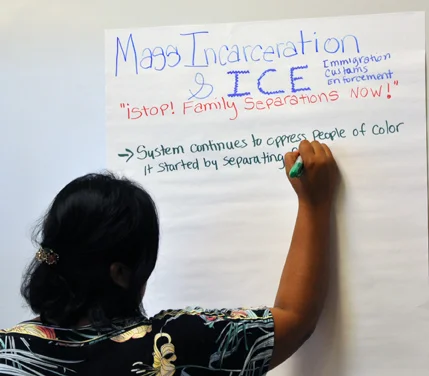 Mass Incarceration
& ICE Immigration
Customs
Enforcement
"¡Stop! Family Separations NOW!"
→ System continues to oppress People of color
it started by separating